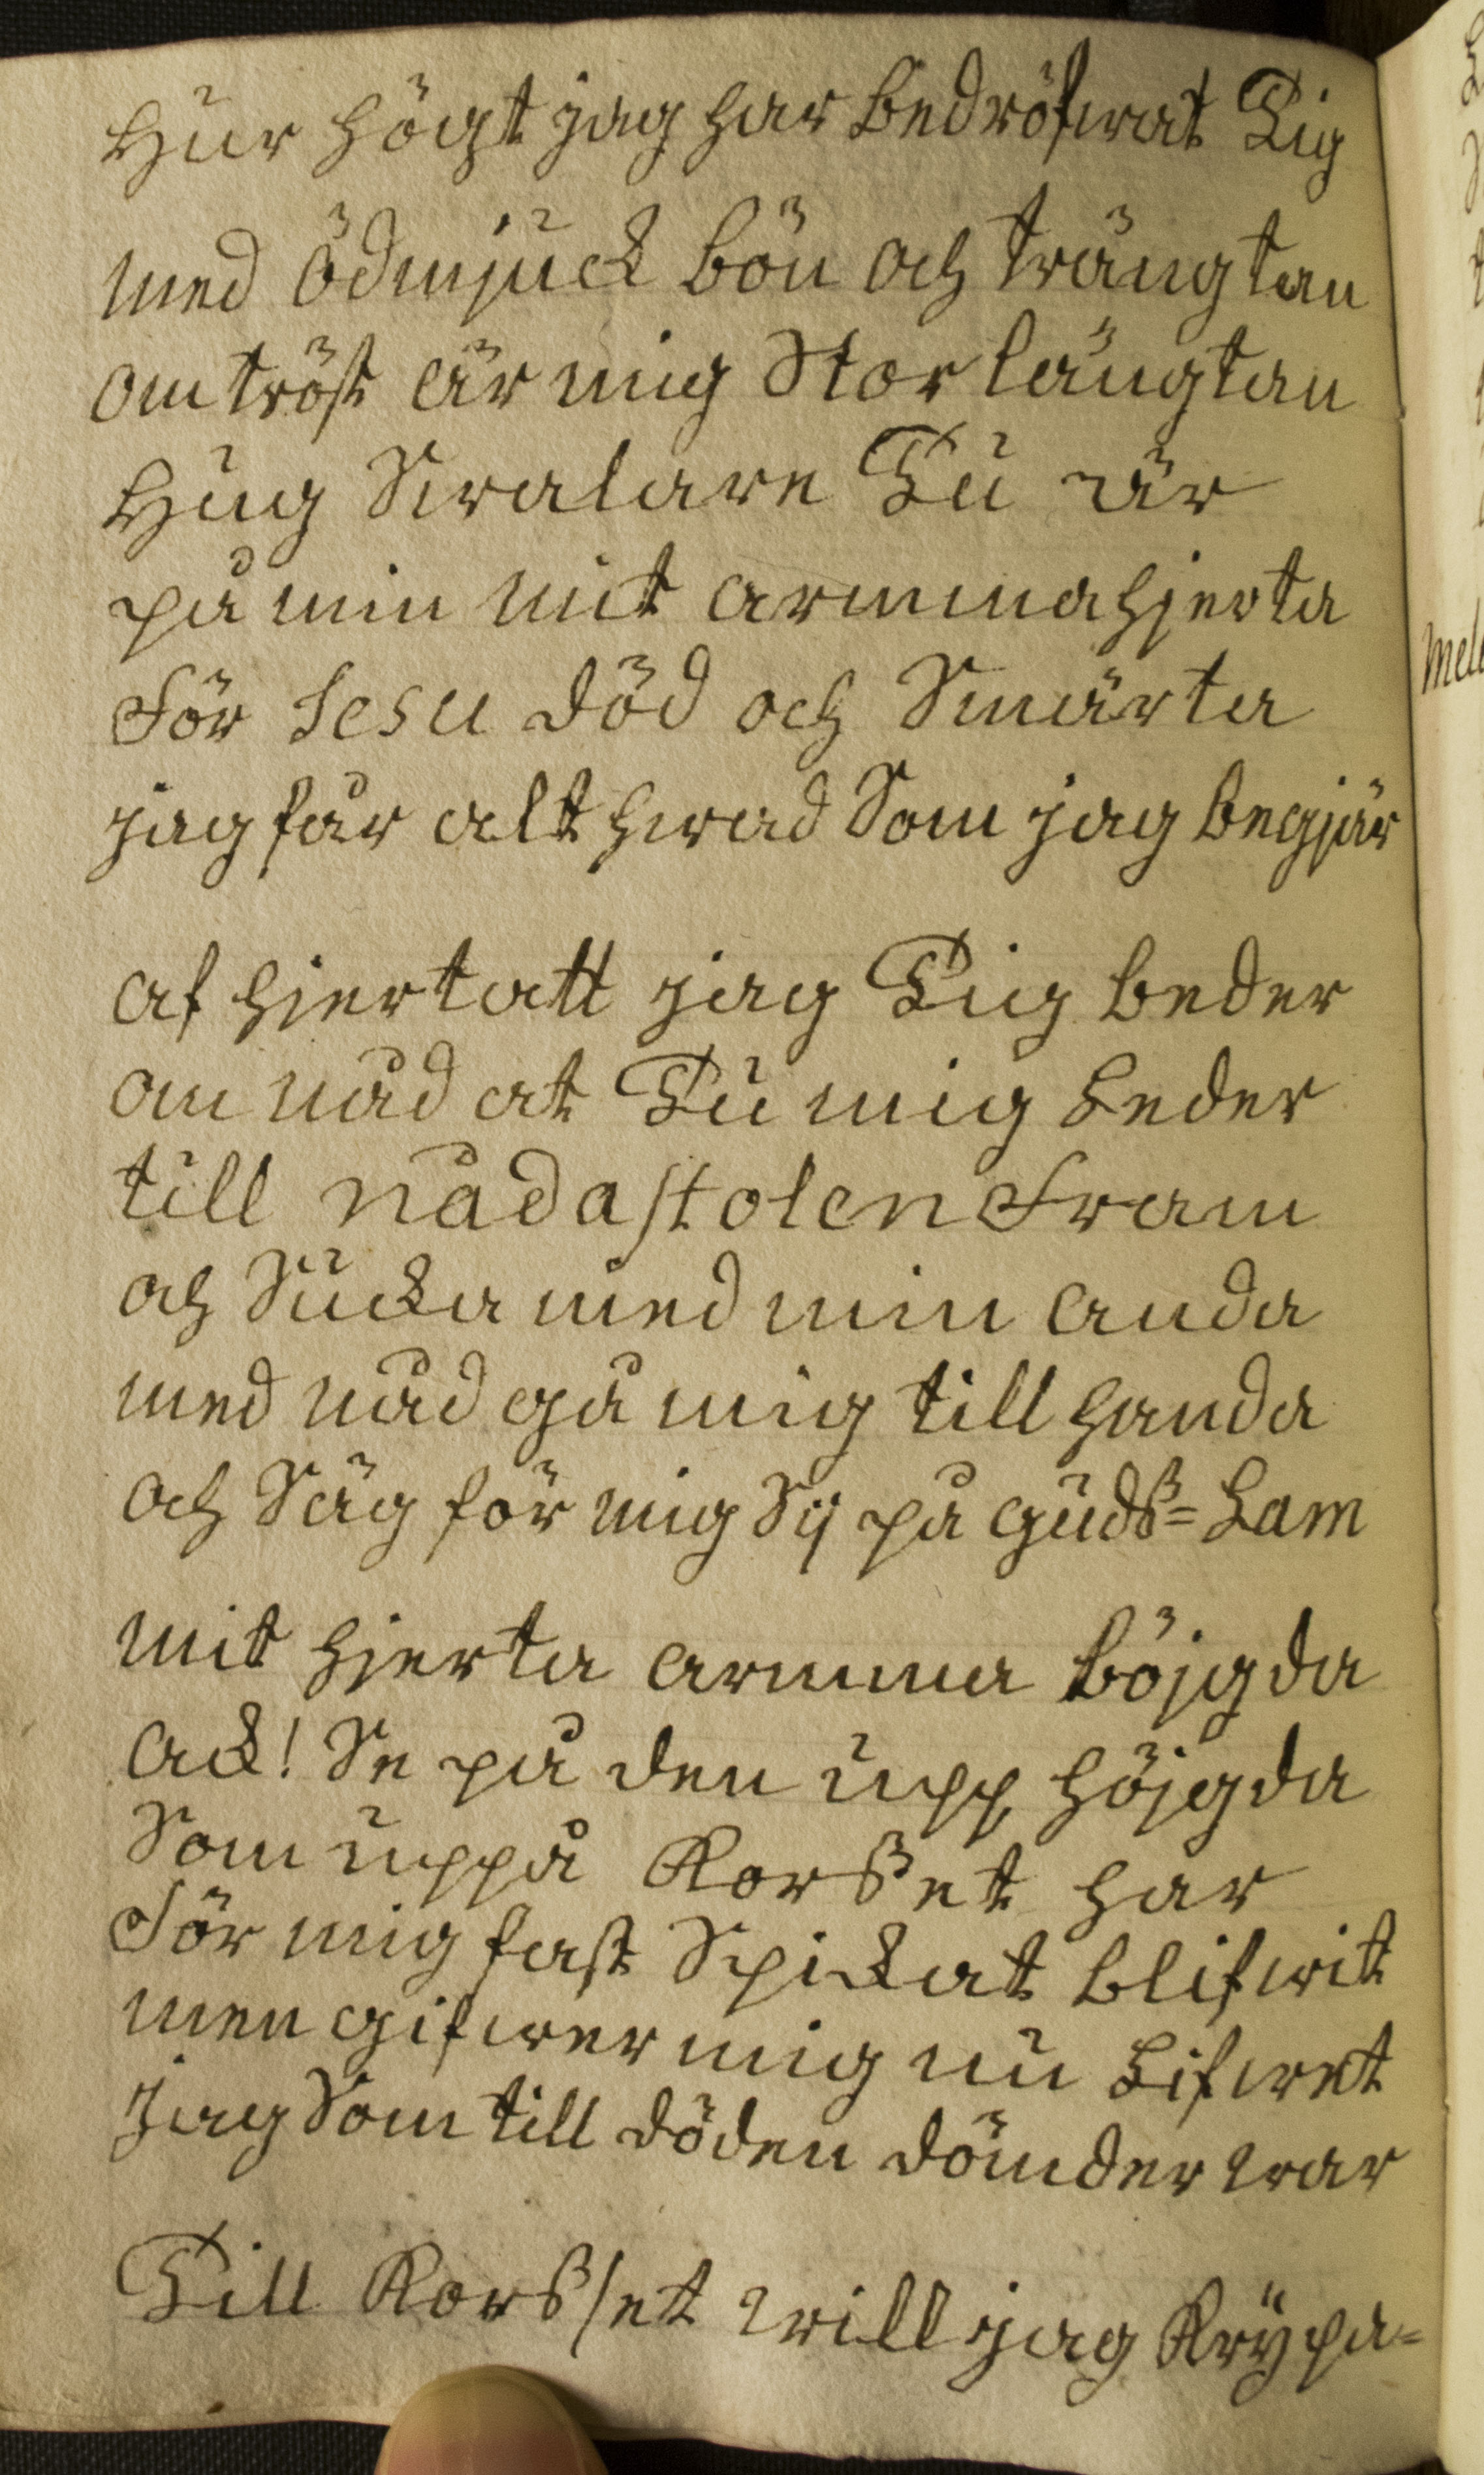 Hur högt jag har bedröfwat Tig
med ödmjuck bön och trängtan
om tröst är mig Stor längtan
Hug Swalare Tu är
på min mit armma hjerta
För Jesu död och Smärta
jag får alt hwad Som jag begjär
af hjertatt jag Tig beder
om nåd at Tu mig Leder
till nådastolen Fram
och Sucka med min anda
med nåd gå mig till handa
och Säg för mig Sij på Gudß=Lam
mit hjerta armma böjgda
ack! Se på den upp höjgda
Som uppå Korßet har
För mig fast Spickat blifwit
men gifwer mig nu Lifwet
Jag Som till döden dömder war
Till Korßset will jag Krÿpa=